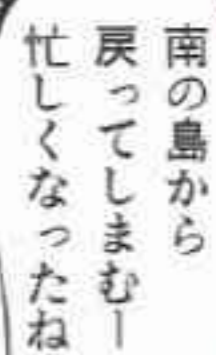 南の島から
戻ってしまむー
忙しくなったね